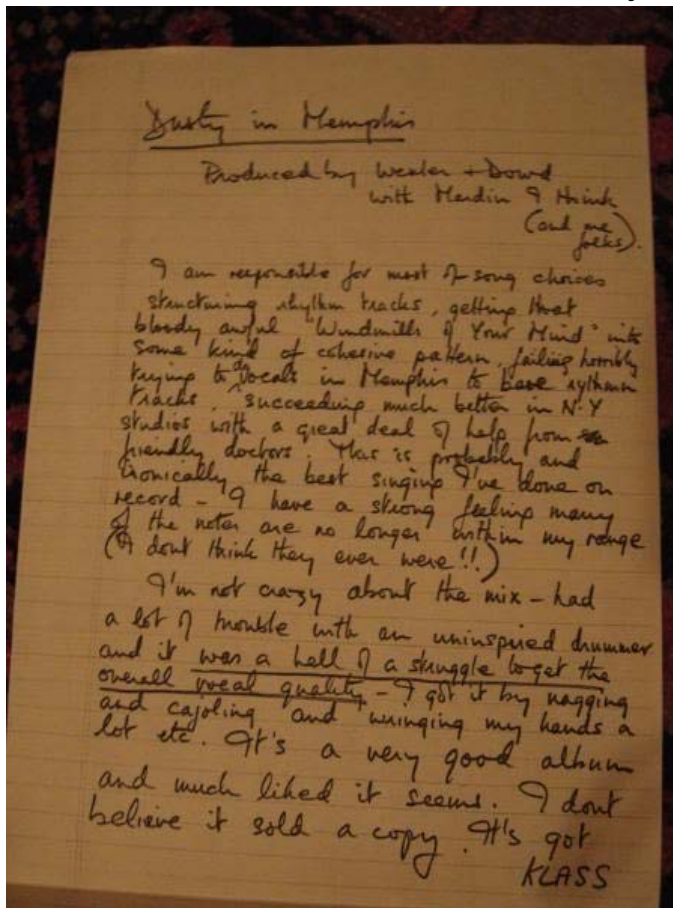 Dusty in Memphis
Produced by Wexler + Dowd
with Mardin I think
(and me
folks).
I am responsible for most of song choices
structuring rhythm tracks, getting that
bloody awful "Windmills of Your Mind" into
some kind of cohesive pattern, failing horribly
trying to do vocals in Memphis to bare rythmn
tracks, succeeding much better in N.Y
studios with a great deal of help from
friendly doctors. This is probably and
ironically the best singing I've done on
record - I have a strong feeling many
of the notes are no longer within my range
(I dont think they ever were!!)
I'm not crazy about the mix - had
a lot of trouble with an uninspired drummer
and it was a hell of a struggle to get the
overall vocal quality - I got it by nagging
and cajoling and wringing my hands a
lot etc. It's a very good album
and much liked it seems. I dont
believe it sold a copy. It's got
KLASS